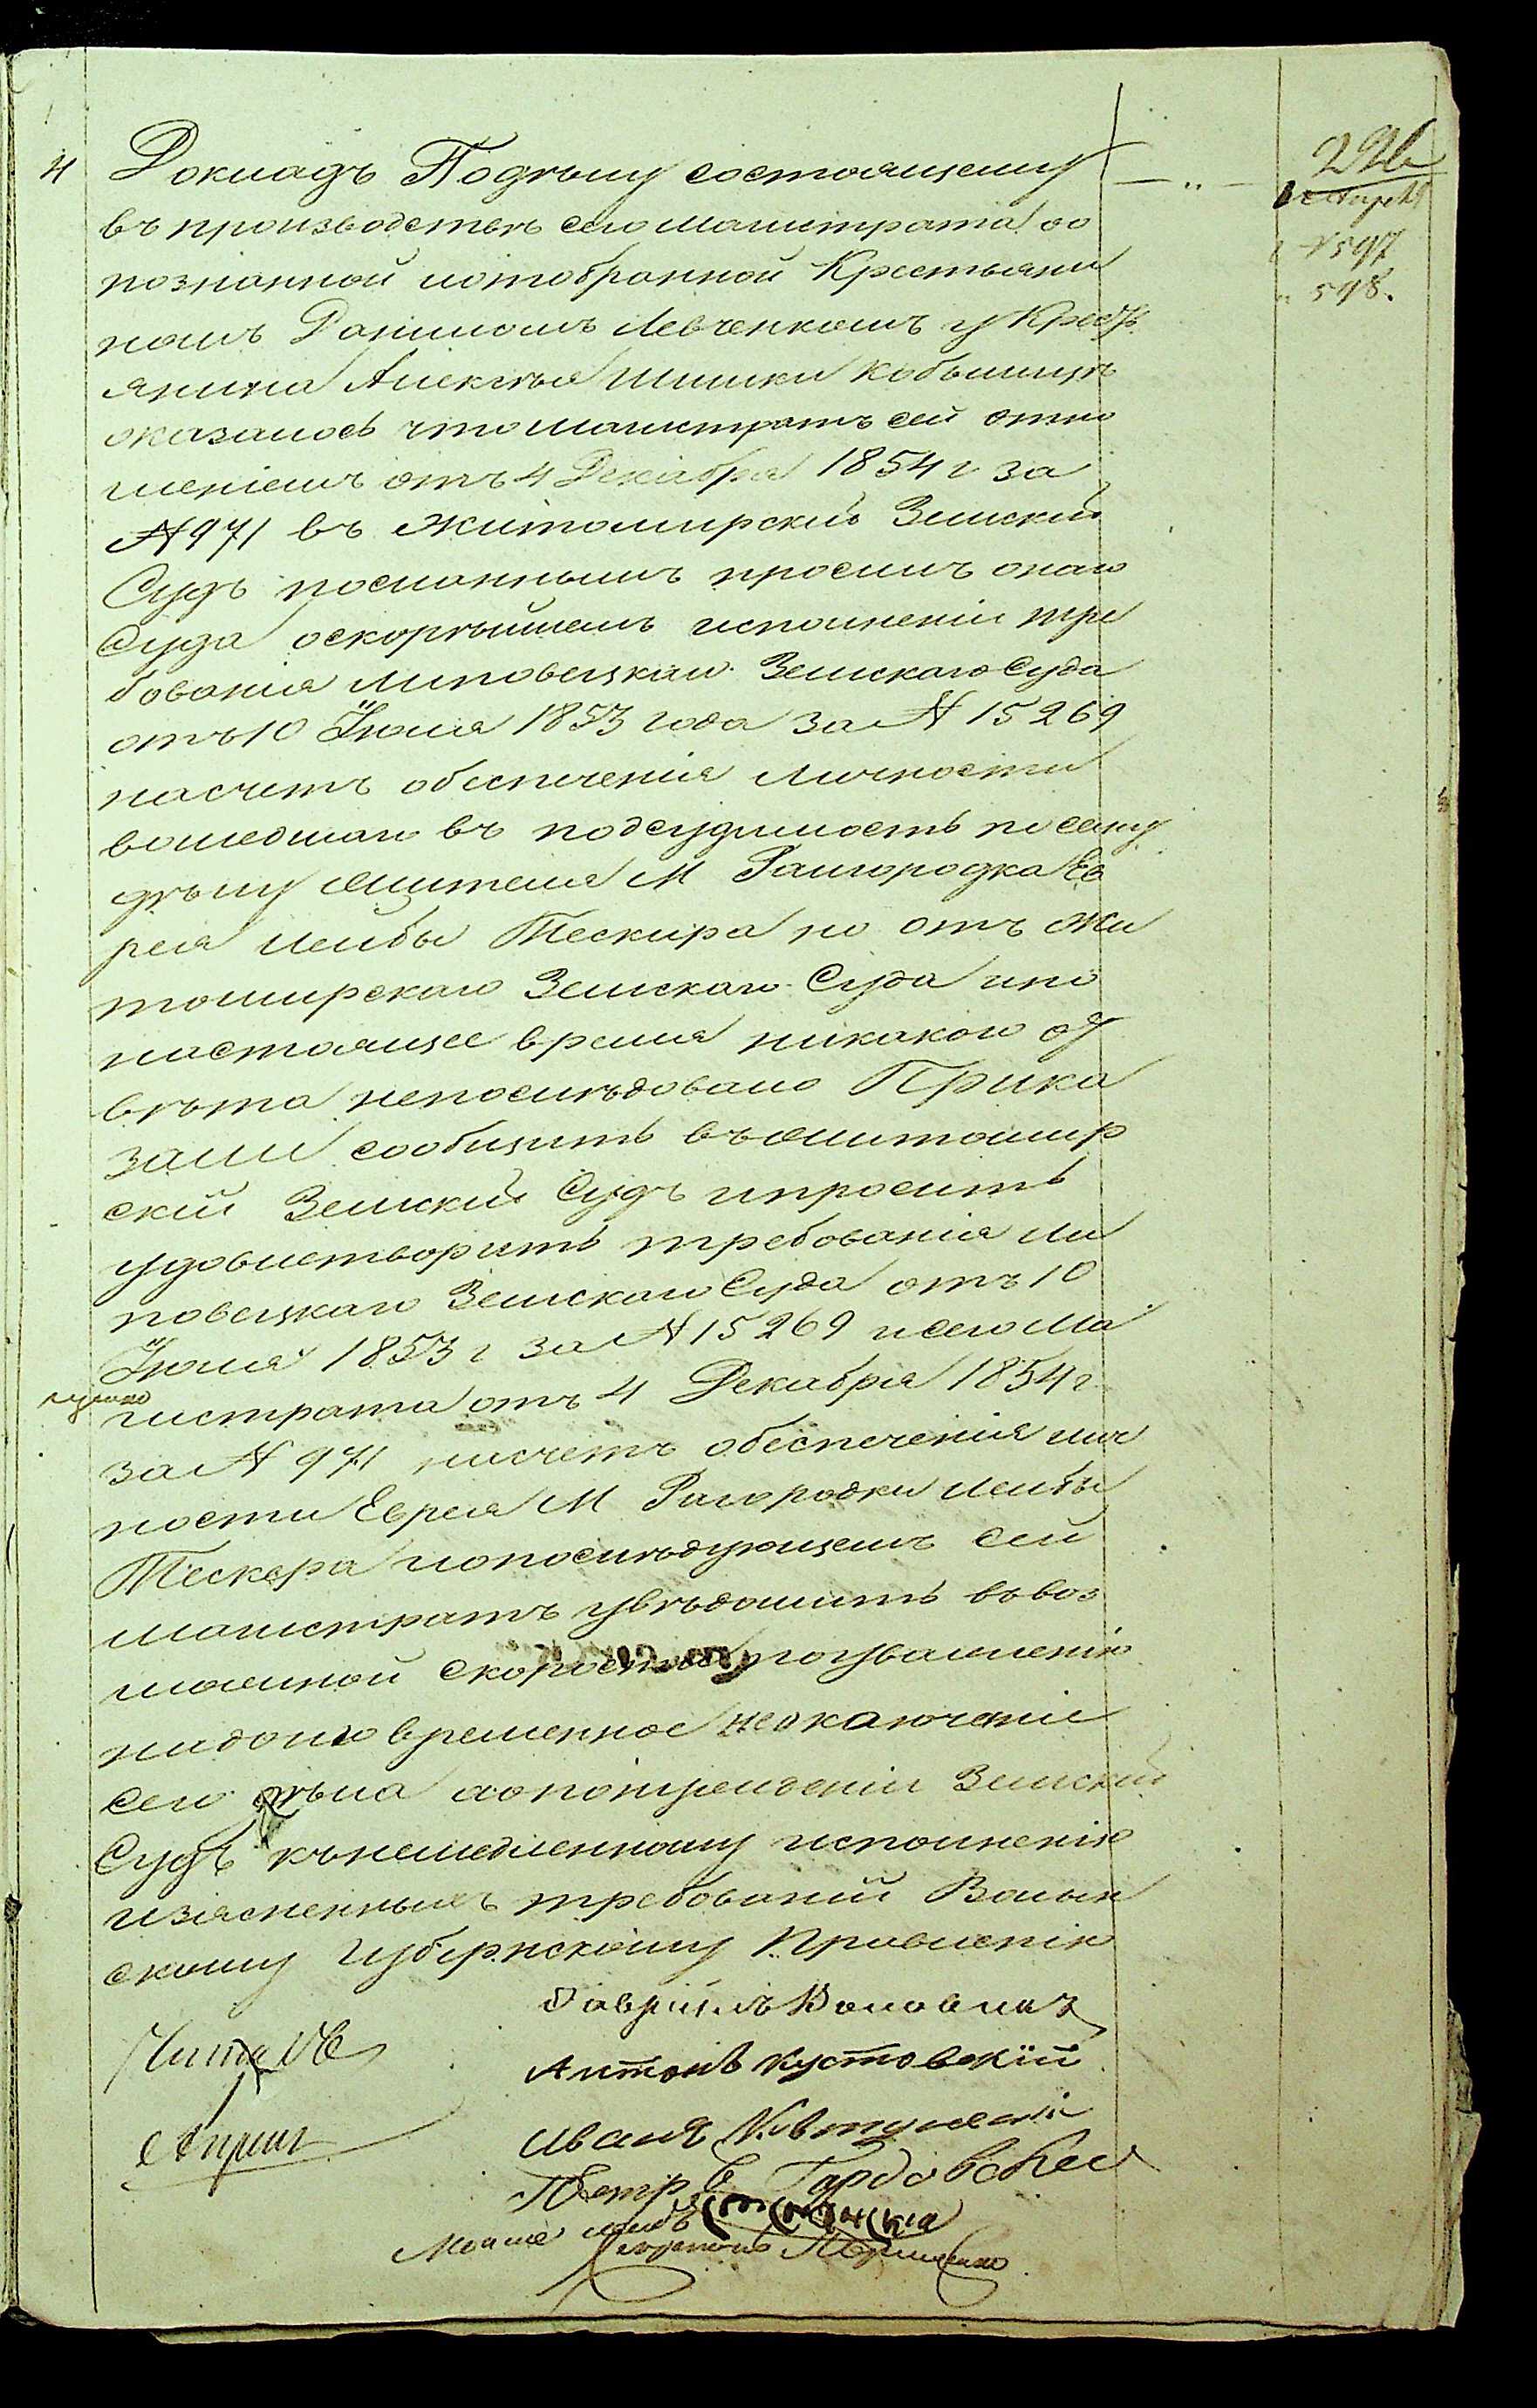 4 Докладъ Поделу состоящему
въ производстве сего магистрата оо
познанной иотобранной Крестьяни
номъ Даниломъ Левченкомъ у Крест
янина Алексея Шишки кобылице
оказалось чтомагистратъ сей отно
шеніемъ отъ 4 Декабря 1854 г за
№ 971 въ Житомирскій Земскій
Судъ посланнымъ просилъ онаго
Суда оскорѣйшемъ исполненіи тре
бованія Липовецкаго Земскаго Суда
отъ 10 Іюля 1853 года за № 15269
насчетъ обеспеченія личности
вошедшаго въ подсудимость посему
делу жителя М Райгородка Ев
рея Лейбы Тескера но отъ Жи
томирскаго Земскаго Суда ипо
настоящее время никакого от
вѣта непоследовало Прика
зали сообщить въ Житомир
скій Земскій Судъ ипросить
удовлетворить требованія Ли
повецкаго Земскаго Суда отъ 10
Іюля 1853 г за № 15269 исего Ма
гистрата отъ 4 Декабря 1854 г
за № 971 насчетъ обеспеченія лич
ности Еврея М Рагородки Лейбы
Тескера ипопослѣдующемъ сей
магистратъ увѣдомить въвоз
можной скорости поуваженію
надолго временное неокаюченіе
сего дѣла аопонужденіи Земскій
Судъ кънемедленному исполненію
изясненныхъ требованій Волын
скому Губернскому Правленію
Антонъ Кустовскій
Иванъ
Петръ Гардовскій
№ 597
" 598.